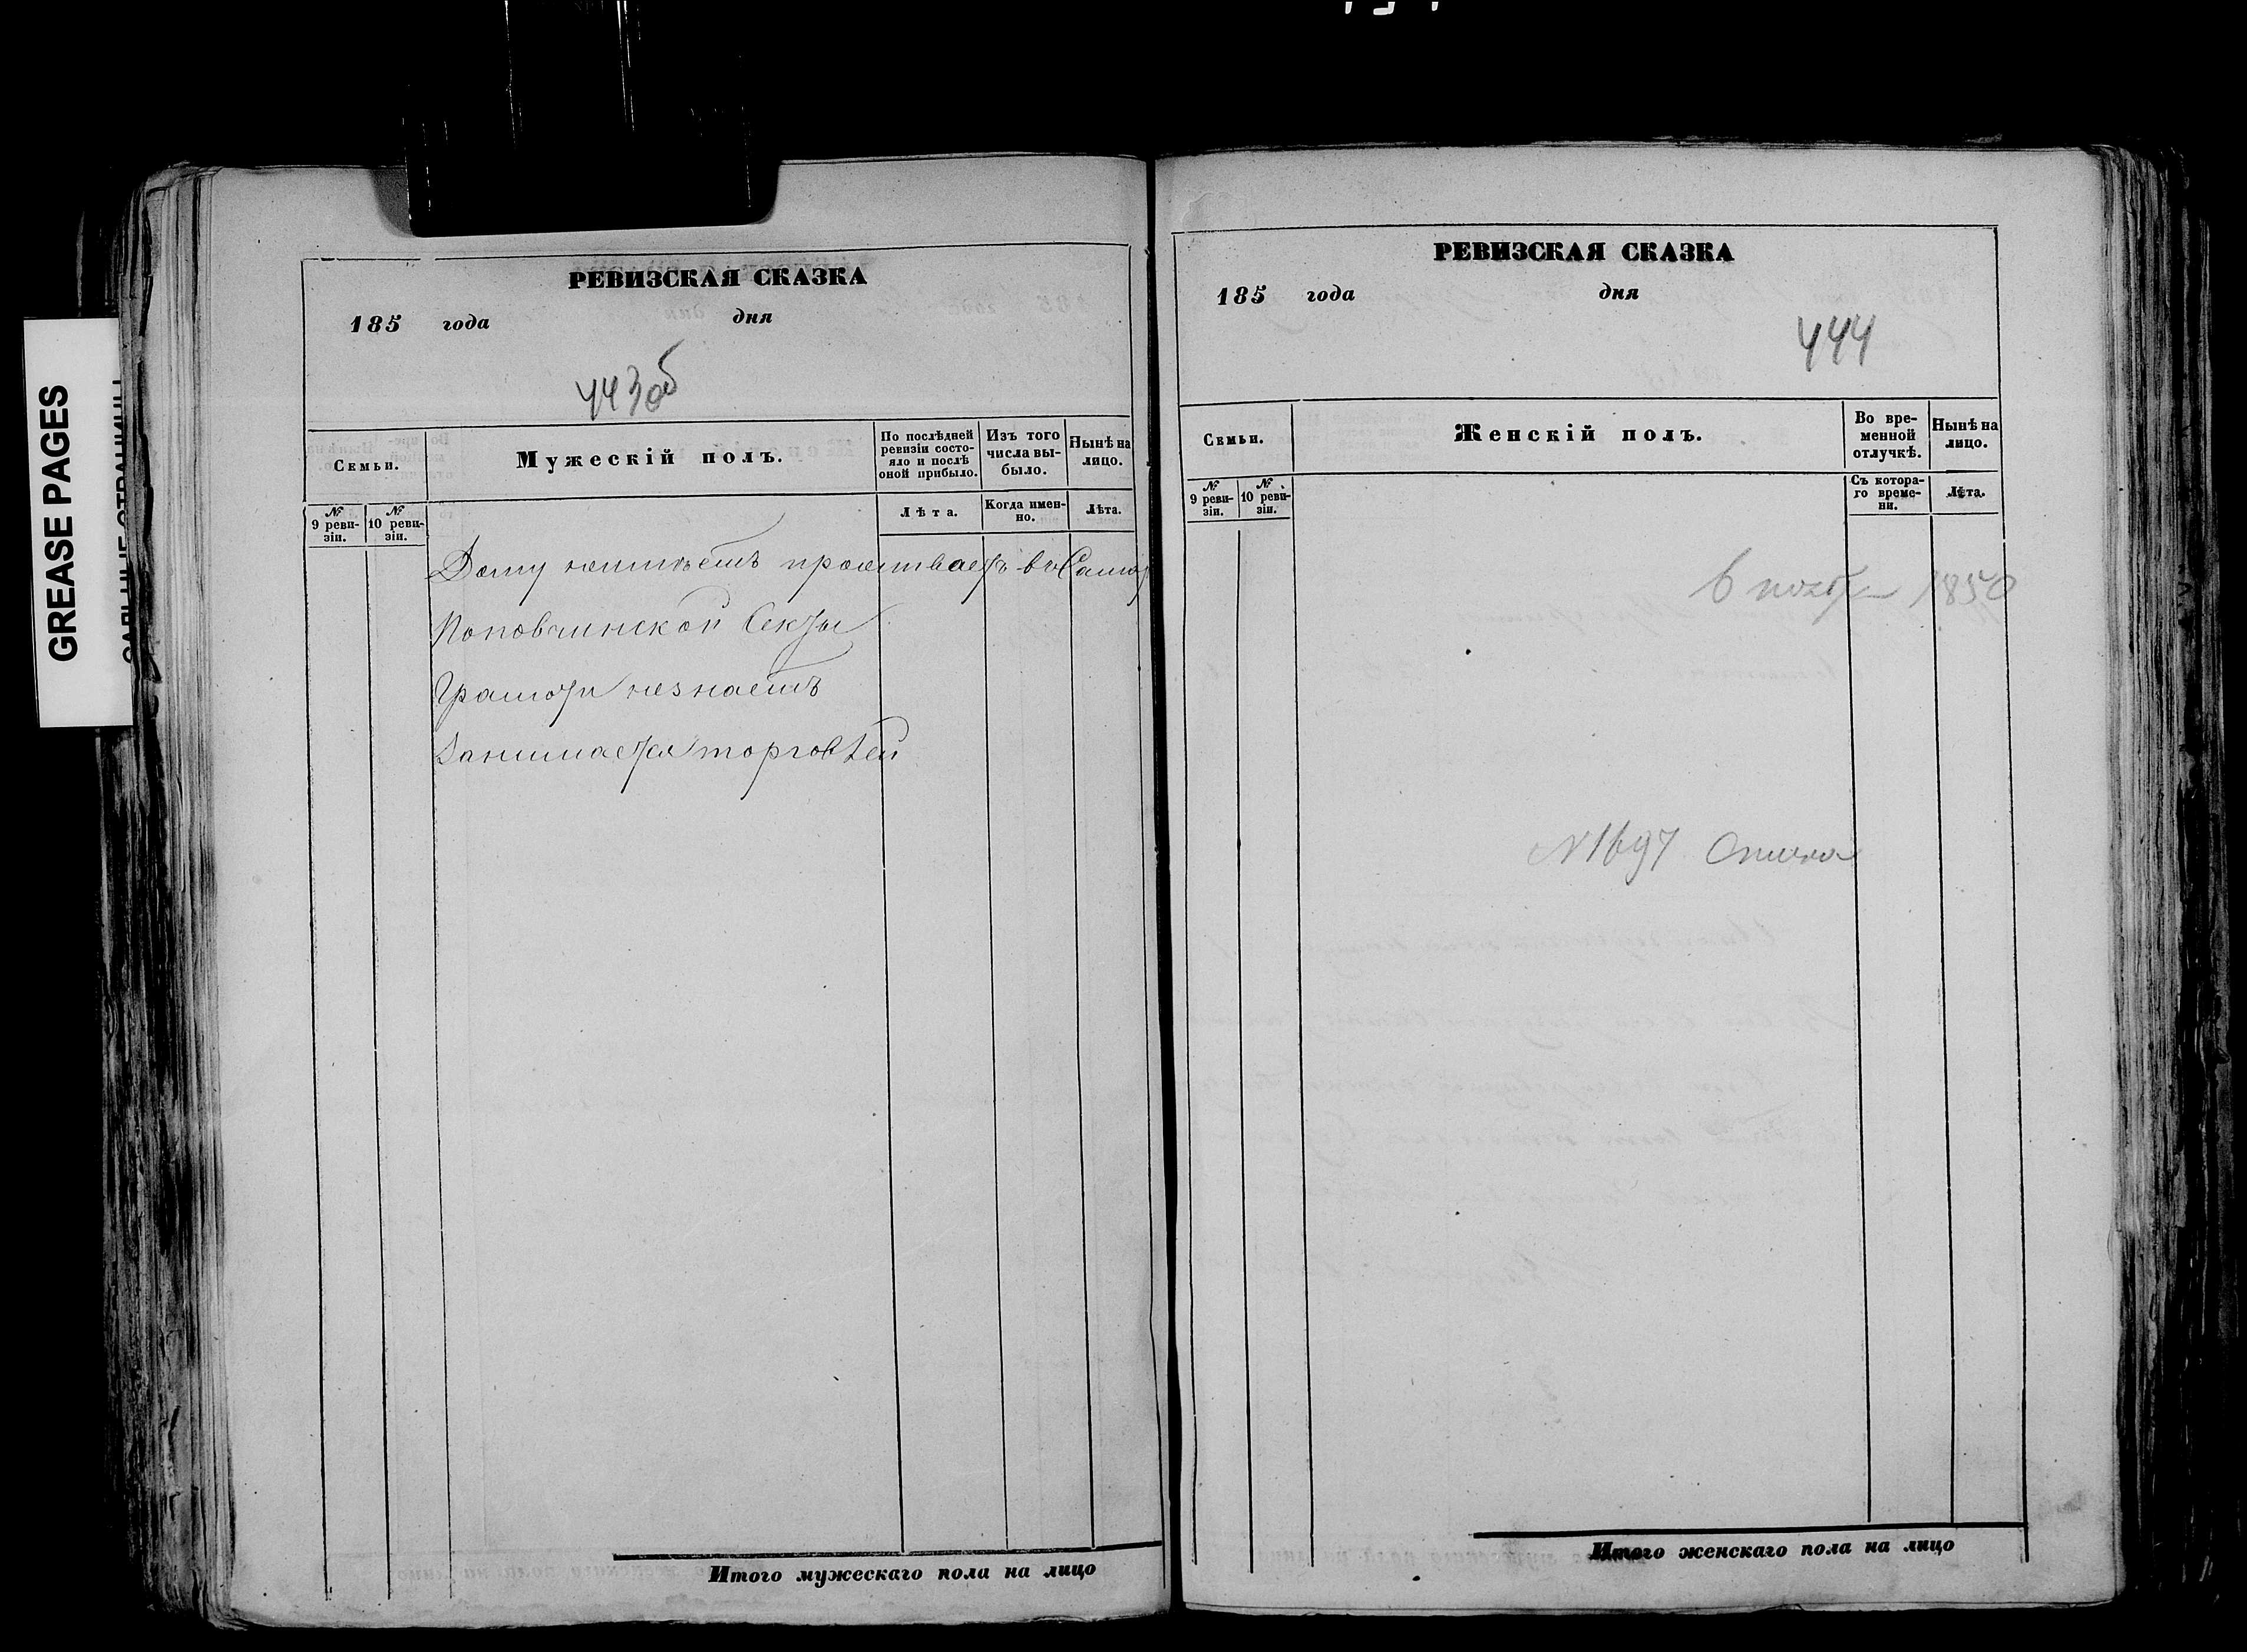 GREASE PAGES
РЕВИЗСКАЯ СКАЗКА
185 года дня
443 об
Семьи.
Мужескій полъ.
По послѣдней ревизіи состояло и послѣ оной прибыло.
Изъ того числа выбыло.
Нынѣ на лицо.
№ 9 ревизіи.
№ 10 ревизіи.
Лѣта.
Когда именно.
Лѣта.
Дому неимѣетъ проживаетъ въ
Поповщинской Секты
Грамоти незнаетъ
Занимается торговлей
Итого мужескаго пола на лицо
РЕВИЗСКАЯ СКАЗКА
185 года дня
444
Семьи.
Женскій полъ.
Во временной отлучкѣ.
Нынѣ на лицо.
№ 9 ревизіи.
№ 10 ревизіи.
Съ котораго времени.
Лѣта.
6 1850
N 1697
Итого женскаго пола на лицо